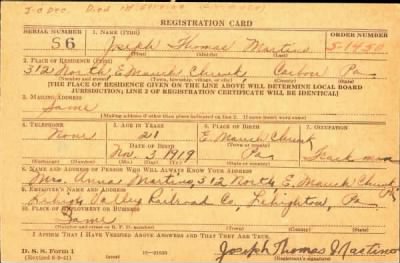 Died in Service
REGISTRATION CARD
SERIAL NUMBER 1. NAME (Print) ORDER NUMBER
S 6 Joseph Thomas Martino S-1450
2. PLACE OF RESIDENCE (Print)
312 North E. Mauch Chunk Carbon Pa
(Number and street) (Town, township, village, or city) (County) (State)
[THE PLACE OF RESIDENCE GIVEN ON THE LINE ABOVE WILL DETERMINE LOCAL BOARD
JURISDICTION; LINE 2 OF REGISTRATION CERTIFICATE WILL BE IDENTICAL]
3. MAILING ADDRESS
Same
[Mailing address if other than place indicated on line 2. If same insert word same]
4. TELEPHONE 5. AGE IN YEARS 6. PLACE OF BIRTH 7. OCCUPATION
None 21 E. Mauch Chunk
DATE OF BIRTH
Nov. 3 1919 Pa. Track man
(Exchange) (Number) (Mo.) (Day) (Yr.) (State or country)
8. NAME AND ADDRESS OF PERSON WHO WILL ALWAYS KNOW YOUR ADDRESS
Mrs. Anna Martino, 312 North E. Mauch Chunk Pa
9. EMPLOYER'S NAME AND ADDRESS
Lehigh Valley Railroad Co. Lehighton, Pa
10. PLACE OF EMPLOYMENT OR BUSINESS
Same
(Number and street or R. F. D. number) (Town) (County) (State)
I AFFIRM THAT I HAVE VERIFIED ABOVE ANSWERS AND THAT THEY ARE TRUE.
D. S. S. Form 1
(over) Joseph Thomas Martino